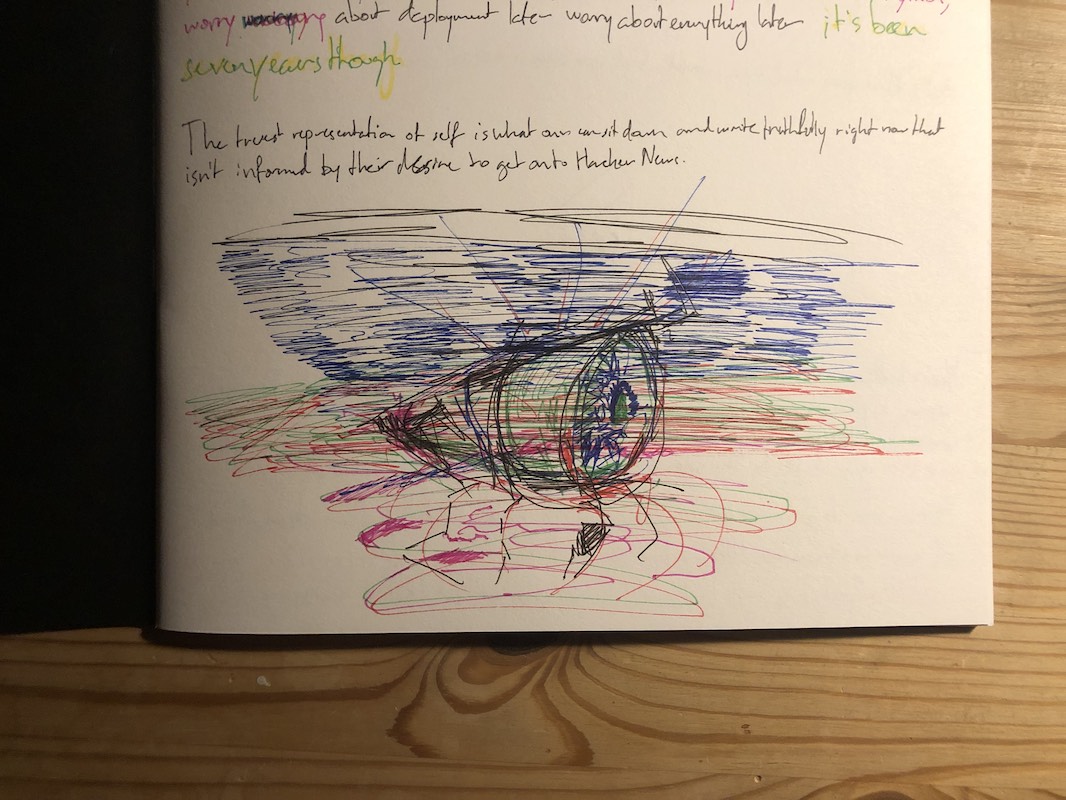 worry about deployment later worry about everything later it's been
seven years though
The truest representation of self is what one can sit down and write truthfully right now that
isn't informed by their desire to get onto Hacker News.